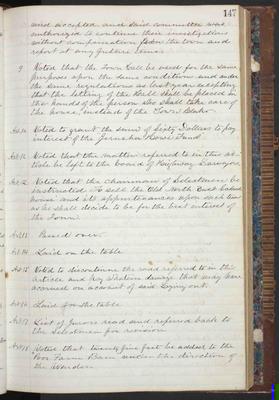 147
and accepted and said committee was
authorized to continue their investigations
without compensation from the town and
report at any future time.
9 Voted that the Town Hall be used for the same
purposes upon the same conditions and under
the same regulations as last year excepting
that the letting of the Hall shall be placed in
the hands of the person who shall take care of
the house, instead of the Town Clerk.
Art. 10 Voted to grant the sum of Sixty Dollars to pay
interest of the Jerusha Howe Fund.
Art. 11 Voted that the matter referred to in this ar-
ticle be left to the board of Highway Surveyors
Art. 12 Voted that the chairman of Selectmen be
instructed to sell the Old North East School
house and all appurtenances upon such terms
as he shall decide to be for the best interest of
the Town.
Art. 13 Passed over.
Art. 14 Laid on the table
Art. 15 Voted to discontinue the road referred to in this
article and any
accrued on account of said laying out.
Art. 16 Laid on the table
Art. 17 List of Jurors read and referred back to
the Selectmen for revision
Art. 18 Voted that twenty five feet be added to the
Poor Farm Barn under the direction of
the